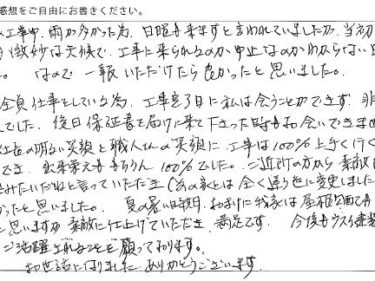 感想をご自由にお書きください。
工事中、雨が多かった為、日曜も来ますと言われていましたが、当初
微妙な天候で、工事に来られるのか中止なのかわからない
なので一報いただけたら良かったと思いました。
全員仕事をしている為、工事完了日に私は会うことができず、非
でした。後日保証書を届けに来て下さった時もお会いできま
社長の明るい笑顔と職人さんの笑顔に、工事は100%上手く行く
でき、出来栄えももちろん100%でした。ご近所の方から素敵に
みたいだねと言っていただき(前の家とは全く違う色に変更しました
かったと思いました。夏の暑い時期、おまけに我家は屋根
と思いますが素敵に仕上げていただき、満足です。今後も
ご活躍されることを願っております。
お世話になりました。ありがとうございます。